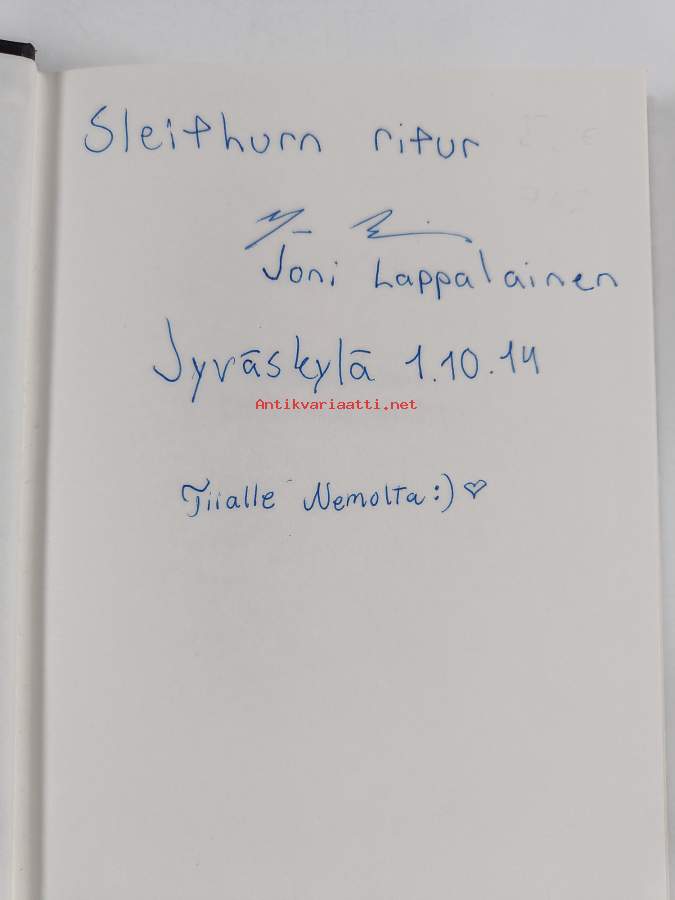 Sleithurn ritur
Joni Lappalainen
Jyväskylä 1.10.14
Antikvariaatti.net
Tiialle Nemolta :) ♡